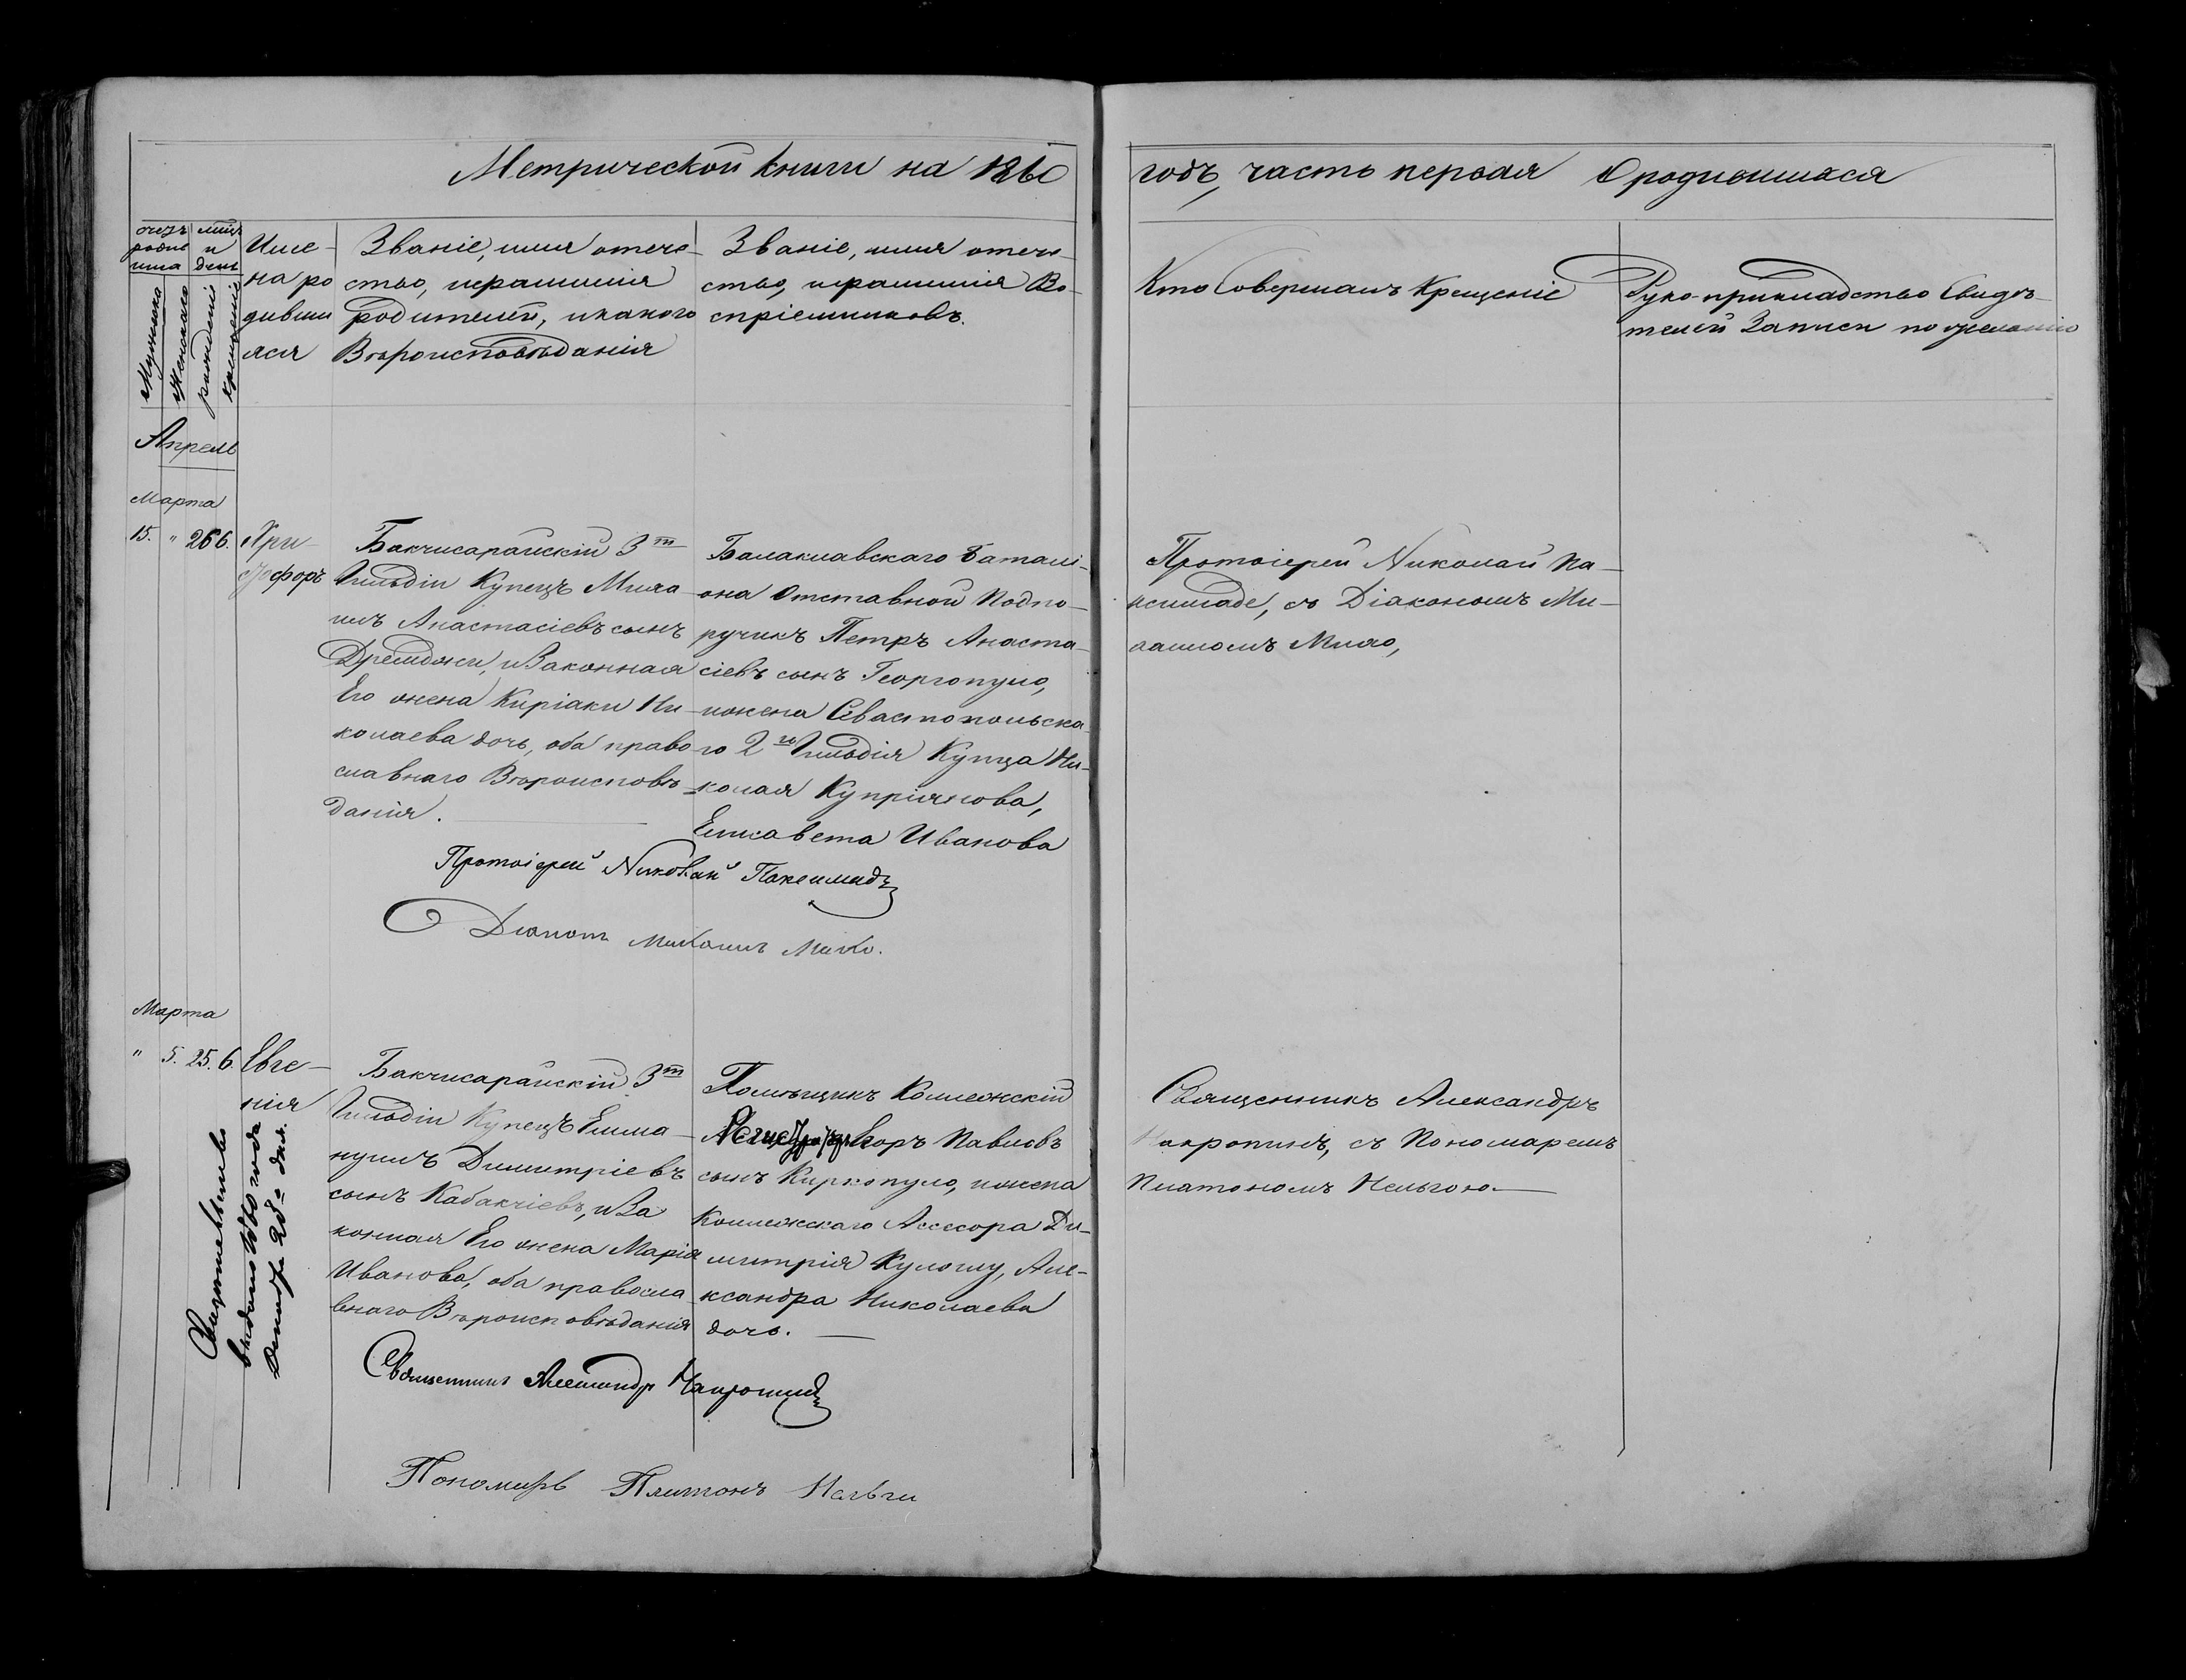 Метрической книги на 1860
годъ, часть первая О родившихся
Мужска
Женска
рожденія
крещенія
Име-
на ро
дивши
яся
Званіе, имя отече-
ство, ифамилія
родителей, икакого
Вѣроисповѣданія
Званіе, имя отече-
ство, ифамилія Во-
спріемниковъ.
Кто Совершалъ Крещеніе
Руко-прикладство Свидѣ-
телей Записи по желанію
Апрель
Марта
15. " 26 6.
Хри-
софоръ
Бакчисарайскій 3й
Гильдіи Купецъ Миха-
илъ Анастасіевъ сынъ
иЗаконная
Его жена Киріаки Ни-
колаева дочь, оба право
славнаго Вѣроисповѣ-
данія.
Балаклавскаго баталі-
она Отставной Подпо-
ручикъ Петръ Анаста-
сіевъ сынъ Георгопуло,
ижена Севастопольска
го 2й Гильдія Купца Ни-
колая Купріянова,
Елисавета Иванова
Протоіерей Николай Па-
ксимаде, съ Діакономъ Ми-
хаиломъ Мико,
Протоіерей Николай Паксимадъ
Діаконъ Михаилъ Мико.
Марта
" 5. 25. 6.
Евге-
нія
Бакчисарайскій 3й
Гильдіи Купецъ Емма-
нуилъ Димитріевъ
сынъ Кабакчіевъ, иЗа
конная Его жена Марія
Иванова, оба правосла
внаго Вѣроисповѣданія
Помѣщикъ Коллежскій
Регистраторъ Егоръ Павловъ
сынъ Киркопуло, ижена
Коллежскаго Ассесора Ди-
митрія Кулошу, Але-
ксандра Николаева
дочь.
Священникъ Александръ
съ Пономаремъ
Платономъ Нельгою
Свидѣтельство
выдано 1860 года
Священникъ Александръ
Пономарь Платонъ Нельги